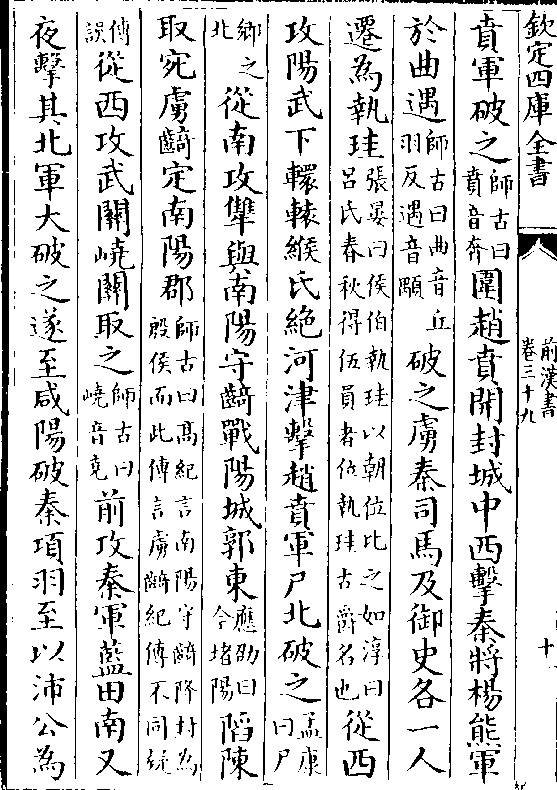 欽定四庫全書
前漢書
卷三十九
十一
賁軍破之師古曰賁音奔圍趙賁開封城中西擊秦將楊熊軍
於曲遇師古曰曲音丘羽反遇音顒破之虜秦司馬及御史各一人
遷為執珪張晏曰侯伯執珪以朝位比之如淳曰呂氏春秋得伍員者位執珪古爵名也從西
攻陽武下轘轅緱氏絶河津擊趙賁軍尸北破之孟康曰尸
鄉之北從南攻犨與南陽守齮戰陽城郭東應劭曰今堵陽䧟陳
取宛虜齮定南陽郡師古曰髙紀言南陽守齮降封為殷侯而此傳言虜齮紀傳不同疑
傳誤從西攻武關嶢關取之師古曰嶢音堯前攻秦軍藍田南又
夜擊其北軍大破之遂至咸陽破秦項羽至以沛公為